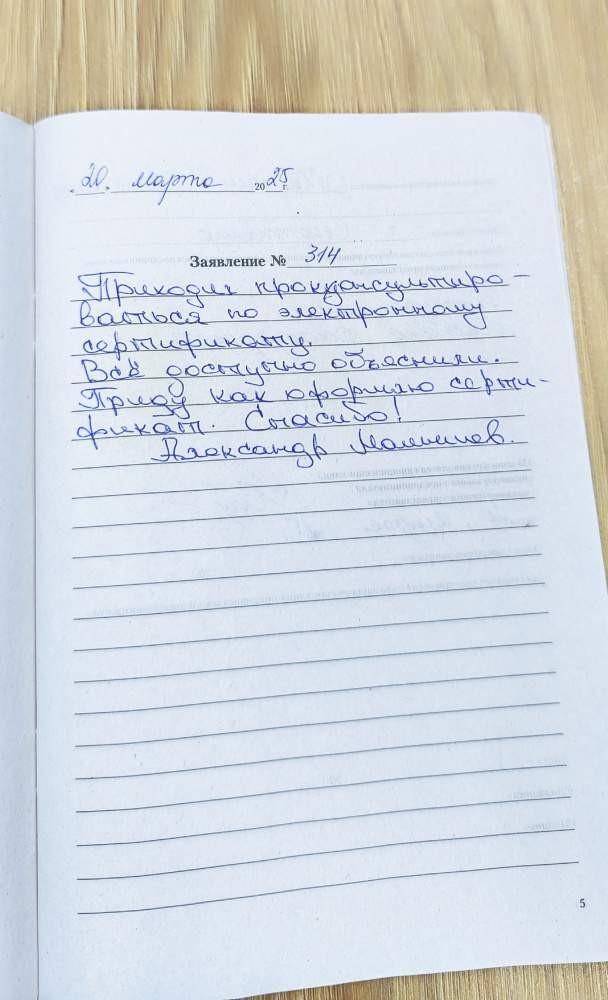 «20» марта 2025 г.
Заявление № 314
Приходил проконсультиро-
ваться по электронному
сертификату.
Всё доступно объяснили.
Приду как оформлю серти-
фикат. Спасибо!
Александр
5